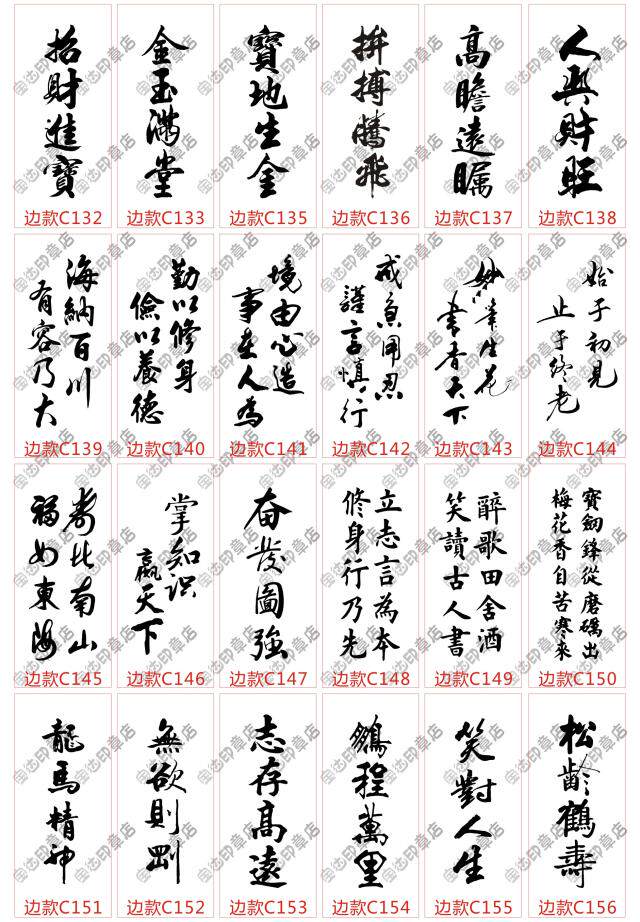 招財進寶
边款C132
金玉滿堂
边款C133
寶地生金
边款C135
拚搏騰飛
边款C136
高瞻遠矚
边款C137
人興財旺
边款C138
海納百川
有容乃大
边款C139
勤以修身
儉以養德
边款C140
境由心造
事在人為
边款C141
戒急用忍
謹言慎行
边款C142
妙筆生花
書香天下
边款C143
始于初見
止于終老
边款C144
壽比南山
福如東海
边款C145
掌知识
赢天下
边款C146
奮發圖強
边款C147
立志言為本
修身行乃先
边款C148
醉歌田舍酒
笑讀古人書
边款C149
寶劍鋒從磨礪出
梅花香自苦寒來
边款C150
龍馬精神
边款C151
無欲則剛
边款C152
志存高遠
边款C153
鵬程萬里
边款C154
笑對人生
边款C155
松齡鶴壽
边款C156
宝达印章店